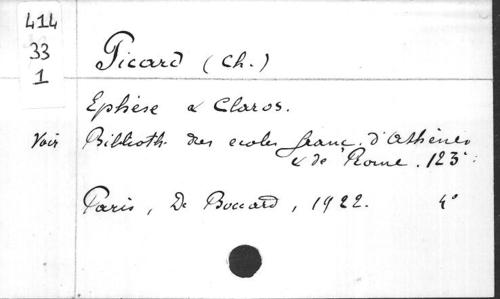 414
33
1
Picard (Ch.)
Ephèse & Claros.
Voir Biblioth. des ecoles franc. d'Athènes
& de Rome. 123
Paris, De Boccard, 1922. 4°